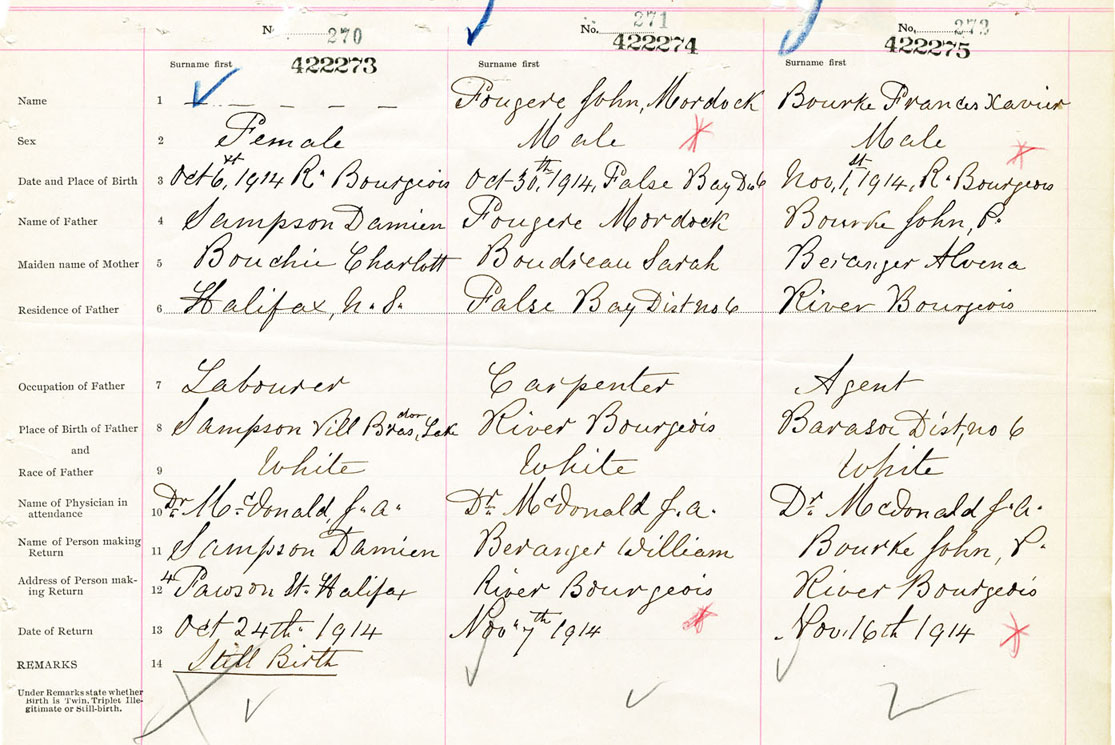 No. 270 No. 271 No. 273
422273 422274 422275
Surname first Surname first Surname first
Name 1 — — — — — Fougere John, Mordock Bourke Francis Xavier
Sex 2 Female Male Male
Date and Place of Birth 3 Oct 6, st, 1914 R. Bourgeois Oct 30, th 1914, False Bay Dis 6 Nov, 1, st 1914, R. Bourgeois
Name of Father 4 Sampson Damien Fougere Mordock Bourke John, P.
Maiden name of Mother 5 Bouchie Charlott Boudreau Sarah Beranger Alvena
Residence of Father 6 Halifax, N. S. False Bay Dist no 6 River Bourgeois
Occupation of Father 7 Labourer Carpenter Agent
Place of Birth of Father 8 Sampson Vill Bras, dor Lake River Bourgeois Barasoi Dist, no 6
and
Race of Father 9 White White White
Name of Physician in
attendance 10 Dr. McDonald, J. A. Dr. McDonald J. A. Dr. McDonald J. A.
Name of Person making
Return 11 Sampson Damien Beranger William Bourke John, P.
Address of Person mak-
ing Return 12 4 Pawson St. Halifax River Bourgeois River Bourgeois
Date of Return 13 Oct 24th 1914 Nov 7th 1914 Nov. 16th 1914
REMARKS 14 Still Birth
Under Remarks state whether
Birth is Twin, Triplet Ille-
gitimate or Still-birth.